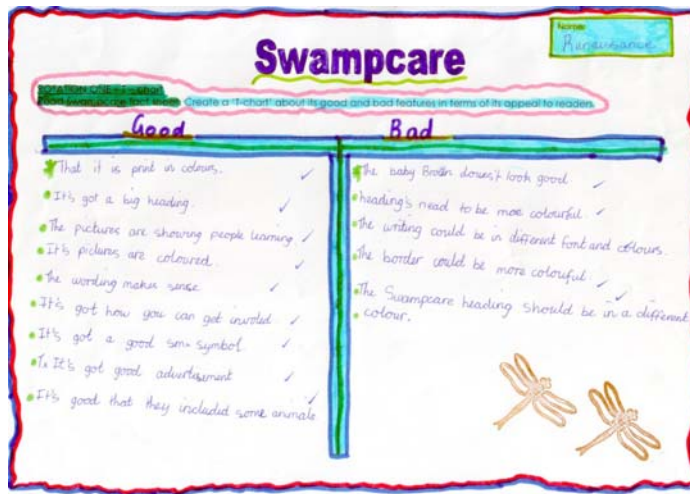 Name:
Renaissance
Swampcare
ROTATION ONE - T - chart
Read Swampcare fact sheet. Create a 'T-chart' about its good and bad features in terms of its appeal to readers.
Good
Bad
That it is print in colours.
It's got a big heading.
The pictures are showing people learning
It's pictures are coloured.
The wording makes sense
It's got how you can get involed
It's got a good symbol
It's got good advertisement
It's good that they included some animals
The baby doesn't look good
heading's need to be more colourful.
The writing could be in different font and colours.
The border could be more colourful.
The Swampcare heading should be in a different
colour.